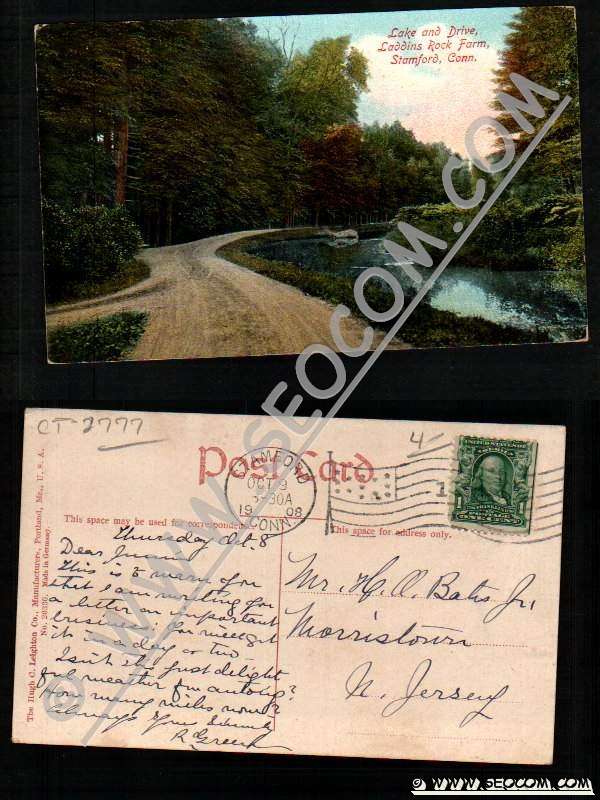 Lake and Drive,
Laddins Rock Farm,
Stamford, Conn.
© WWW.SEOCOM.COM
CT-2777
4/-
Post Card
STAMFORD
OCT 9
-30A
1908
CONN.
1
UNITED STATES OF
AMERICA
1 1
ONE CENT
This space may be used for correspondence
This space for address only.
The Hugh C. Leighton Co., Manufacturers, Portland, Me., U. S. A.
Made in Germany.
Thursday Oct. 8
Dear
This is to warn you
that I am writing you
a letter on important
business. You will get
it in a day or two.
Isn't it just delight
ful weather for autoing?
How many miles now?
Always Your
R
Mr. H. O. Jr.
Morristown
N. Jersey
© WWW.SEOCOM.COM